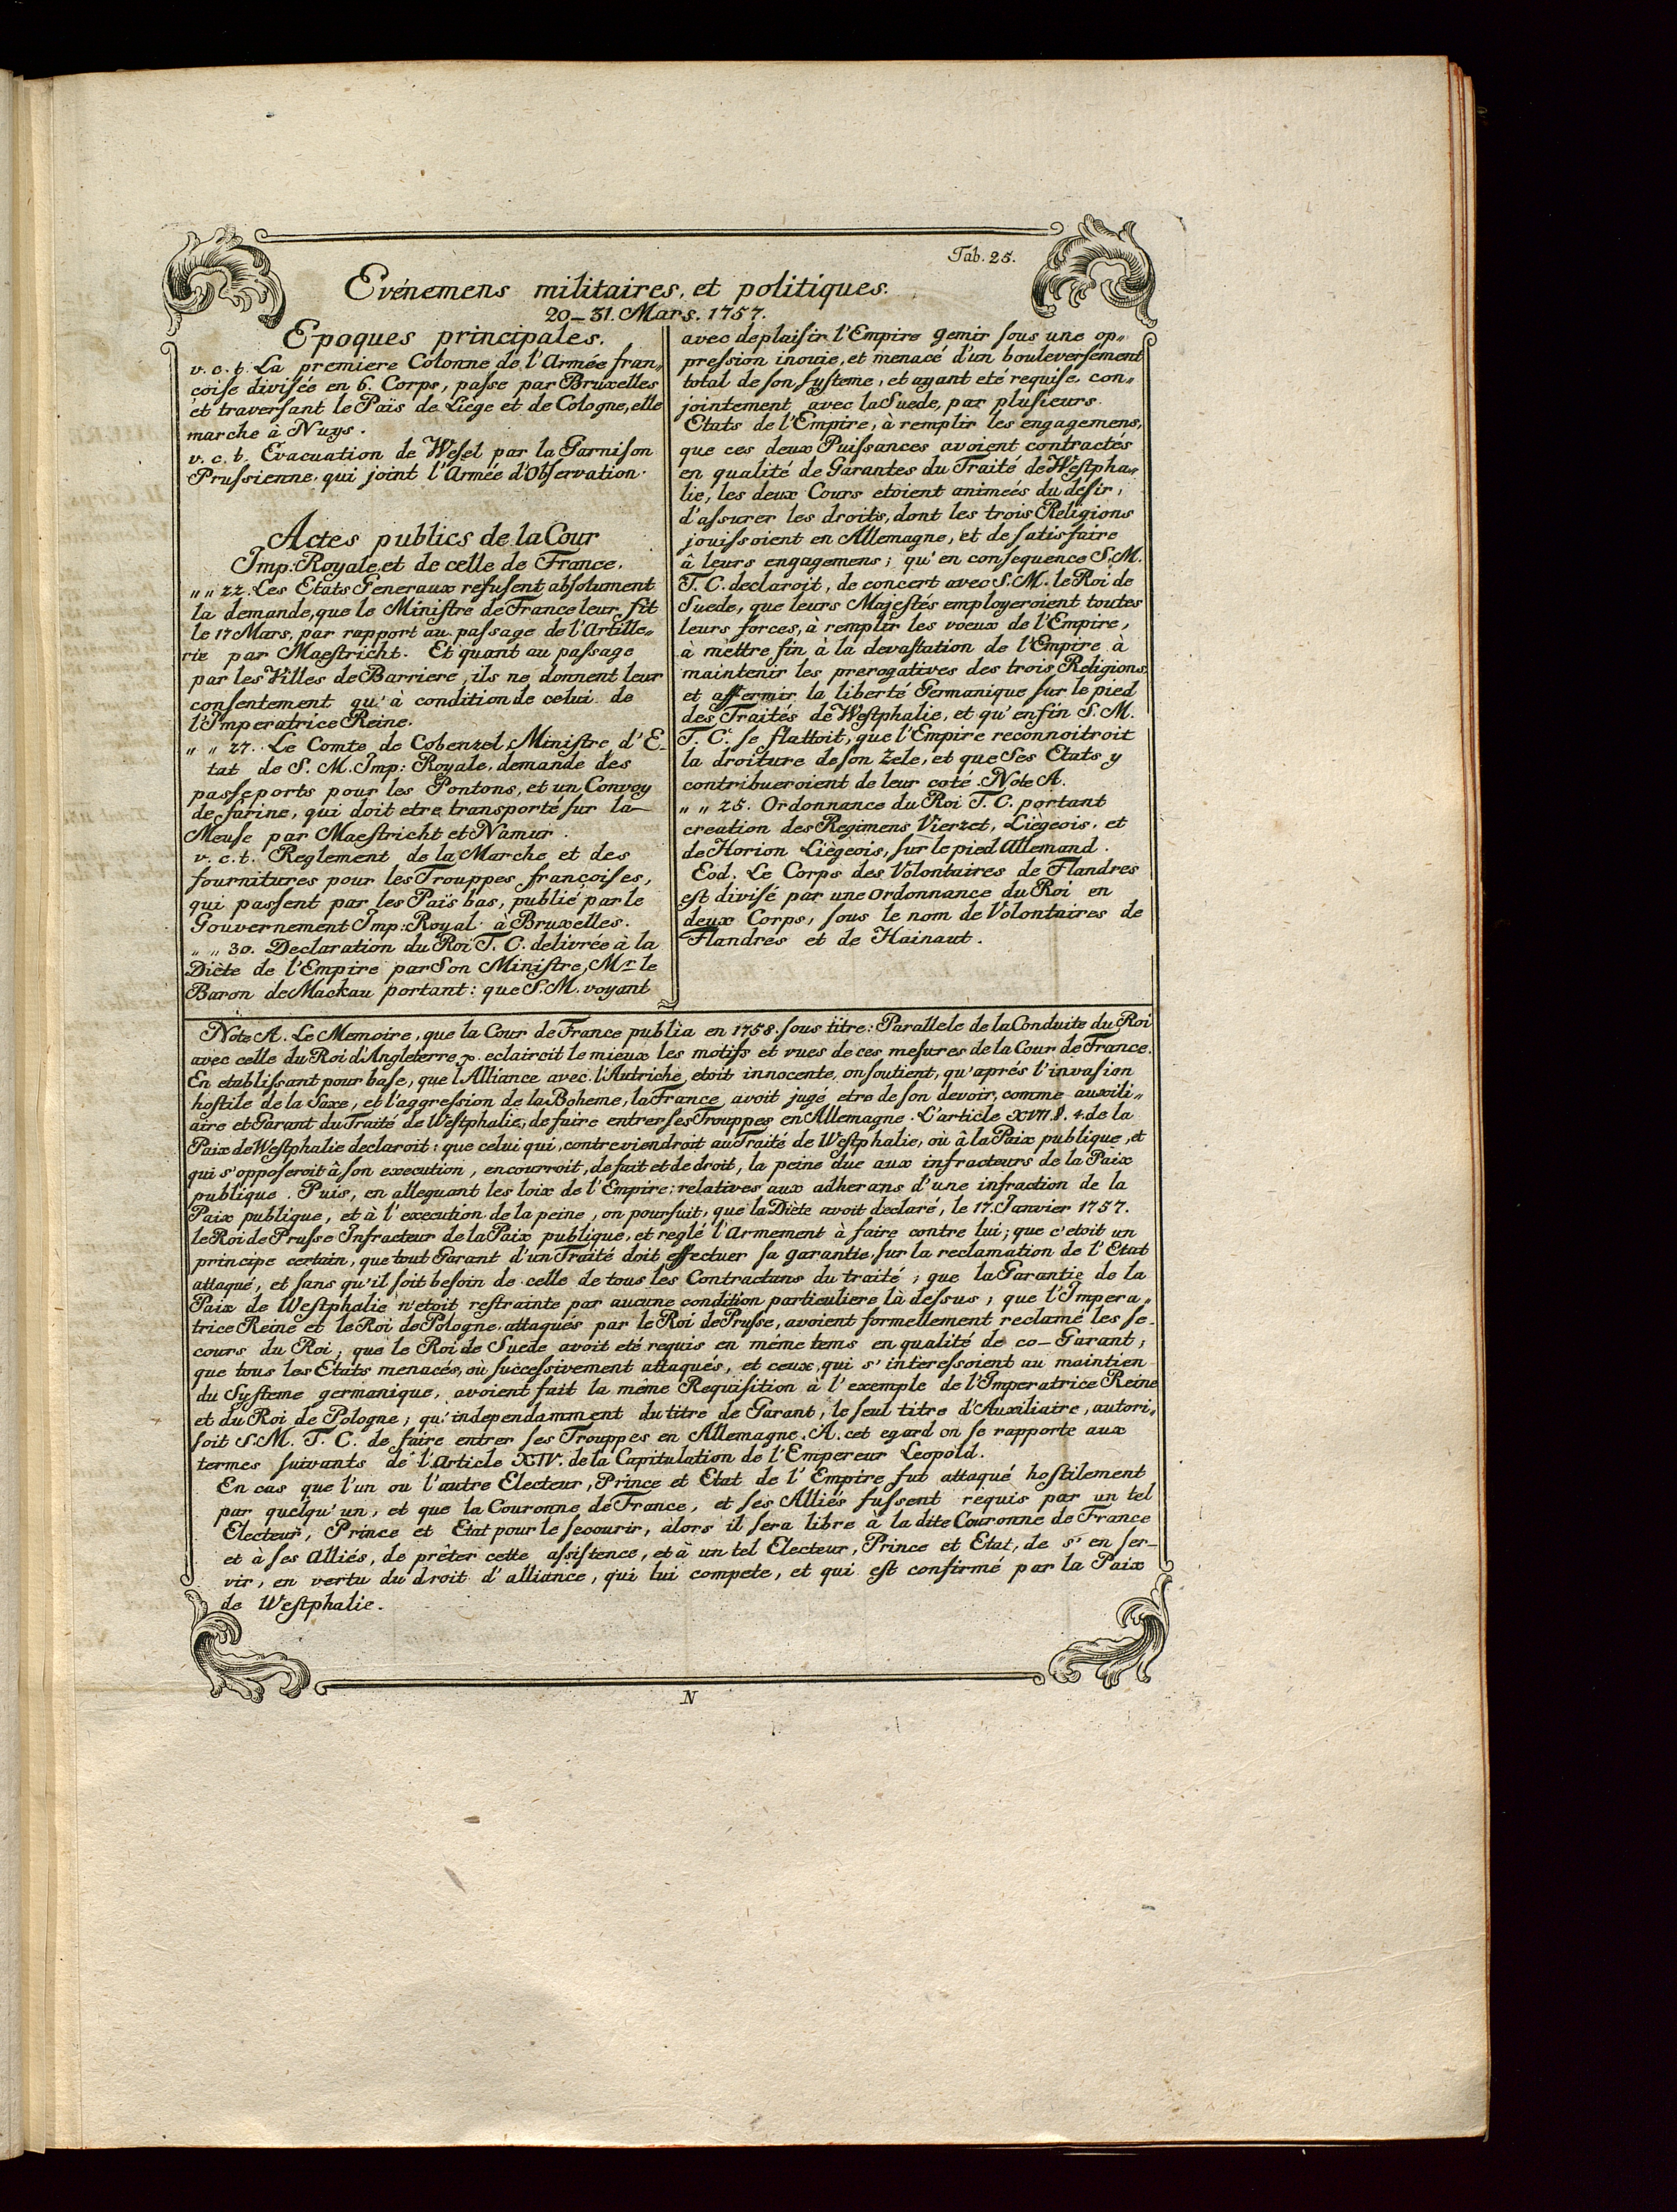 Tab. 25.
Evénemens militaires, et politiques.
20–31. Mars. 1757.
Epoques principales.
v. c. t. La premiere Colonne de l'Armée fran„
çoise divisée en 6. Corps, passe par Bruxelles
et traversant le Païs de Liege et de Cologne, elle
marche à Nuys.
v. c. t. Evacuation de Wesel par la Garnison
Prussienne, qui joint l'Armée d'Observation.
Actes publics de la Cour
Imp: Royale, et de celle de France.
„ „ 22. Les Etats Generaux refusent absolument
la demande, que le Ministre de France leur fit
le 17 Mars, par rapport au passage de l'Artille„
rie par Maestricht. Et quant au passage
par les Villes de Barriere, ils ne donnent leur
consentement qu'à condition de celui de
l'Imperatrice Reine.
„ „ 27. Le Comte de Cobenzel, Ministre d'E-
tat de S. M. Imp: Royale, demande des
passeports pour les Pontons, et un Convoy
de farine, qui doit etre transporté sur la
Meuse par Maestricht et Namur.
v. c. t. Reglement de la Marche et des
fournitures pour les Trouppes françoises,
qui passent par les Païs bas, publié par le
Gouvernement Imp: Royal à Bruxelles.
„ „ 30. Declaration du Roi T. C. delivrée à la
Diète de l'Empire par Son Ministre, Mr le
Baron de Mackau portant: que S. M. voyant
avec deplaisir l'Empire gemir sous une op„
pression inouie, et menacé d'un bouleversement
total de son systeme, et ayant eté requise, con„
jointement avec la Suede, par plusieurs
Etats de l'Empire, à remplir les engagemens,
que ces deux Puissances avoient contractés
en qualité de Garantes du Traité de Westpha„
lie, les deux Cours etoient animeés du désir,
d'assurer les droits, dont les trois Religions
jouissoient en Allemagne, et de satisfaire
â leurs engagemens; qu'en consequence S. M.
T. C. declaroit, de concert avec S. M. le Roi de
Suede, que leurs Majestés employeroient toutes
leurs forces, à remplir les voeux de l'Empire,
à mèttre fin à la devastation de l'Empire à
maintenir les prerogatives des trois Religions
et affermir la liberté Germanique sur le pied
des Traités de Westphalie, et qu'enfin S. M.
T. C. se flattoit, que l'Empire reconnoitroit
la droiture de son zele, et que Ses Etats y
contribueroient de leur coté. Note A.
„ „ 25. Ordonnance du Roi T. C. portant
creation des Regimens Vierzet, Liègeois, et
de Horion Liègeois, sur le pied Allemand.
Eod. Le Corps des Volontaires de Flandres
est divisé par une Ordonnance du Roi en
deux Corps, sous le nom de Volontaires de
Flandres et de Hainaut.
Note A. Le Memoire, que la Cour de France publia en 1758. sous titre: Parallele de la Conduite du Roi
avec celle du Roi d'Angleterre eclaircit le mieux les motifs et vues de ces mesures de la Cour de France.
En etablissant pour base, que l'Alliance avec l'Autriche etoit innocente, on soutient, qu'aprés l'invasion
hostile de la Saxe, et l'aggression de la Boheme, la France avoit jugé etre de son devoir, comme auxili„
aire et Garant du Traité de Westphalie, de faire entrer ses Trouppes en Allemagne. L'article XVII. §. 4. de la
Paix de Westphalie declaroit: que celui qui, contreviendroit au Traité de Westphalie, où â la Paix publique, et
qui s'opposeroit â son execution, encourroit, de fait et de droit, la peine due aux infracteurs de la Paix
publique. Puis, en alleguant les loix de l'Empire: relatives aux adherans d'une infraction de la
Paix publique, et à l'execution de la peine, on poursuit, que la Diète avoit declaré, le 17. Janvier 1757.
le Roi de Prusse Infracteur de la Paix publique, et reglé l'Armement à faire contre lui; que c'etoit un
principe certain, que tout Garant d'un Traité doit effectuer sa garantie, sur la reclamation de l'Etat
attaqué, et sans qu'il soit besoin de celle de tous les Contractans du traité; que la Garantie de la
Paix de Westphalie n'etoit restrainte par aucune condition particuliere là dessus; que l'Impera„
trice Reine et le Roi de Pologne, attaqués par le Roi de Prusse, avoient formellement reclamé les se-
cours du Roi; que le Roi de Suede avoit eté requis en méme tems en qualité de co–Garant;
que tous les Etats menacés, où successivement attaqués, et ceux, qui s'interessoient au maintien
du Systeme germanique, avoient fait la même Requisition à l'exemple de l'Imperatrice Reine
et du Roi de Pologne; qu'independamment du titre de Garant, le seul titre d'Auxiliaire, autori„
soit S. M. T. C. de faire entrer ses Trouppes en Allemagne. A cet egard on se rapporte aux
termes suivants de l'Article XIV. de la Capitulation de l'Empereur Leopold.
En cas que l'un ou l'autre Electeur, Prince et Etat de l'Empire fut attaqué hostilement
par quelqu'un, et que la Couronne de France, et ses Alliés fussent requis par un tel
Electeur, Prince et Etat pour le secourir, alors il sera libre à la dite Couronne de France
et à ses Alliés, de prêter cette assistence, et à un tel Electeur, Prince et Etat, de s'en ser-
vir, en vertu du droit d'alliance, qui lui compete, et qui est confirmé par la Paix
de Westphalie.
N